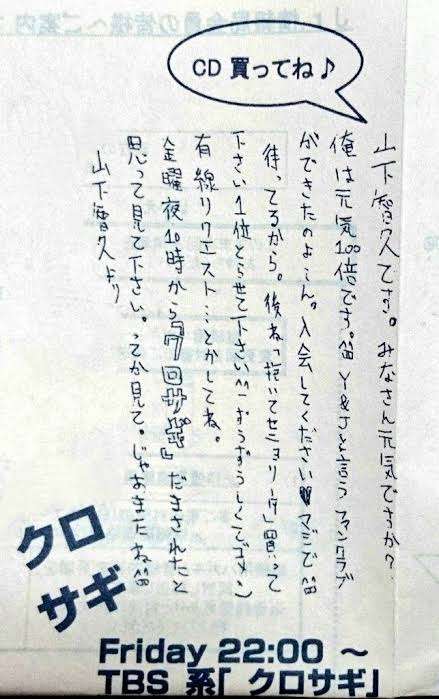 CD 買ってね♪
山下智久です。みなさん元気ですか?
俺は元気100倍です。笑 Y&Jと言うファンクラブ
ができたのよーん。入会してください♥マジで笑
待ってるから。後ね「抱いてセニョリータ」買って
下さい1位とらせて下さい^^ーずうずうしくてゴメン)
有線リクエスト…とかしてね。
金曜夜10時から『クロサギ』だまされたと
思って見て下さい。ってか見て。じゃあまたね笑
山下智久より
クロ
サギ
Friday 22:00 ~
TBS 系「クロサギ」